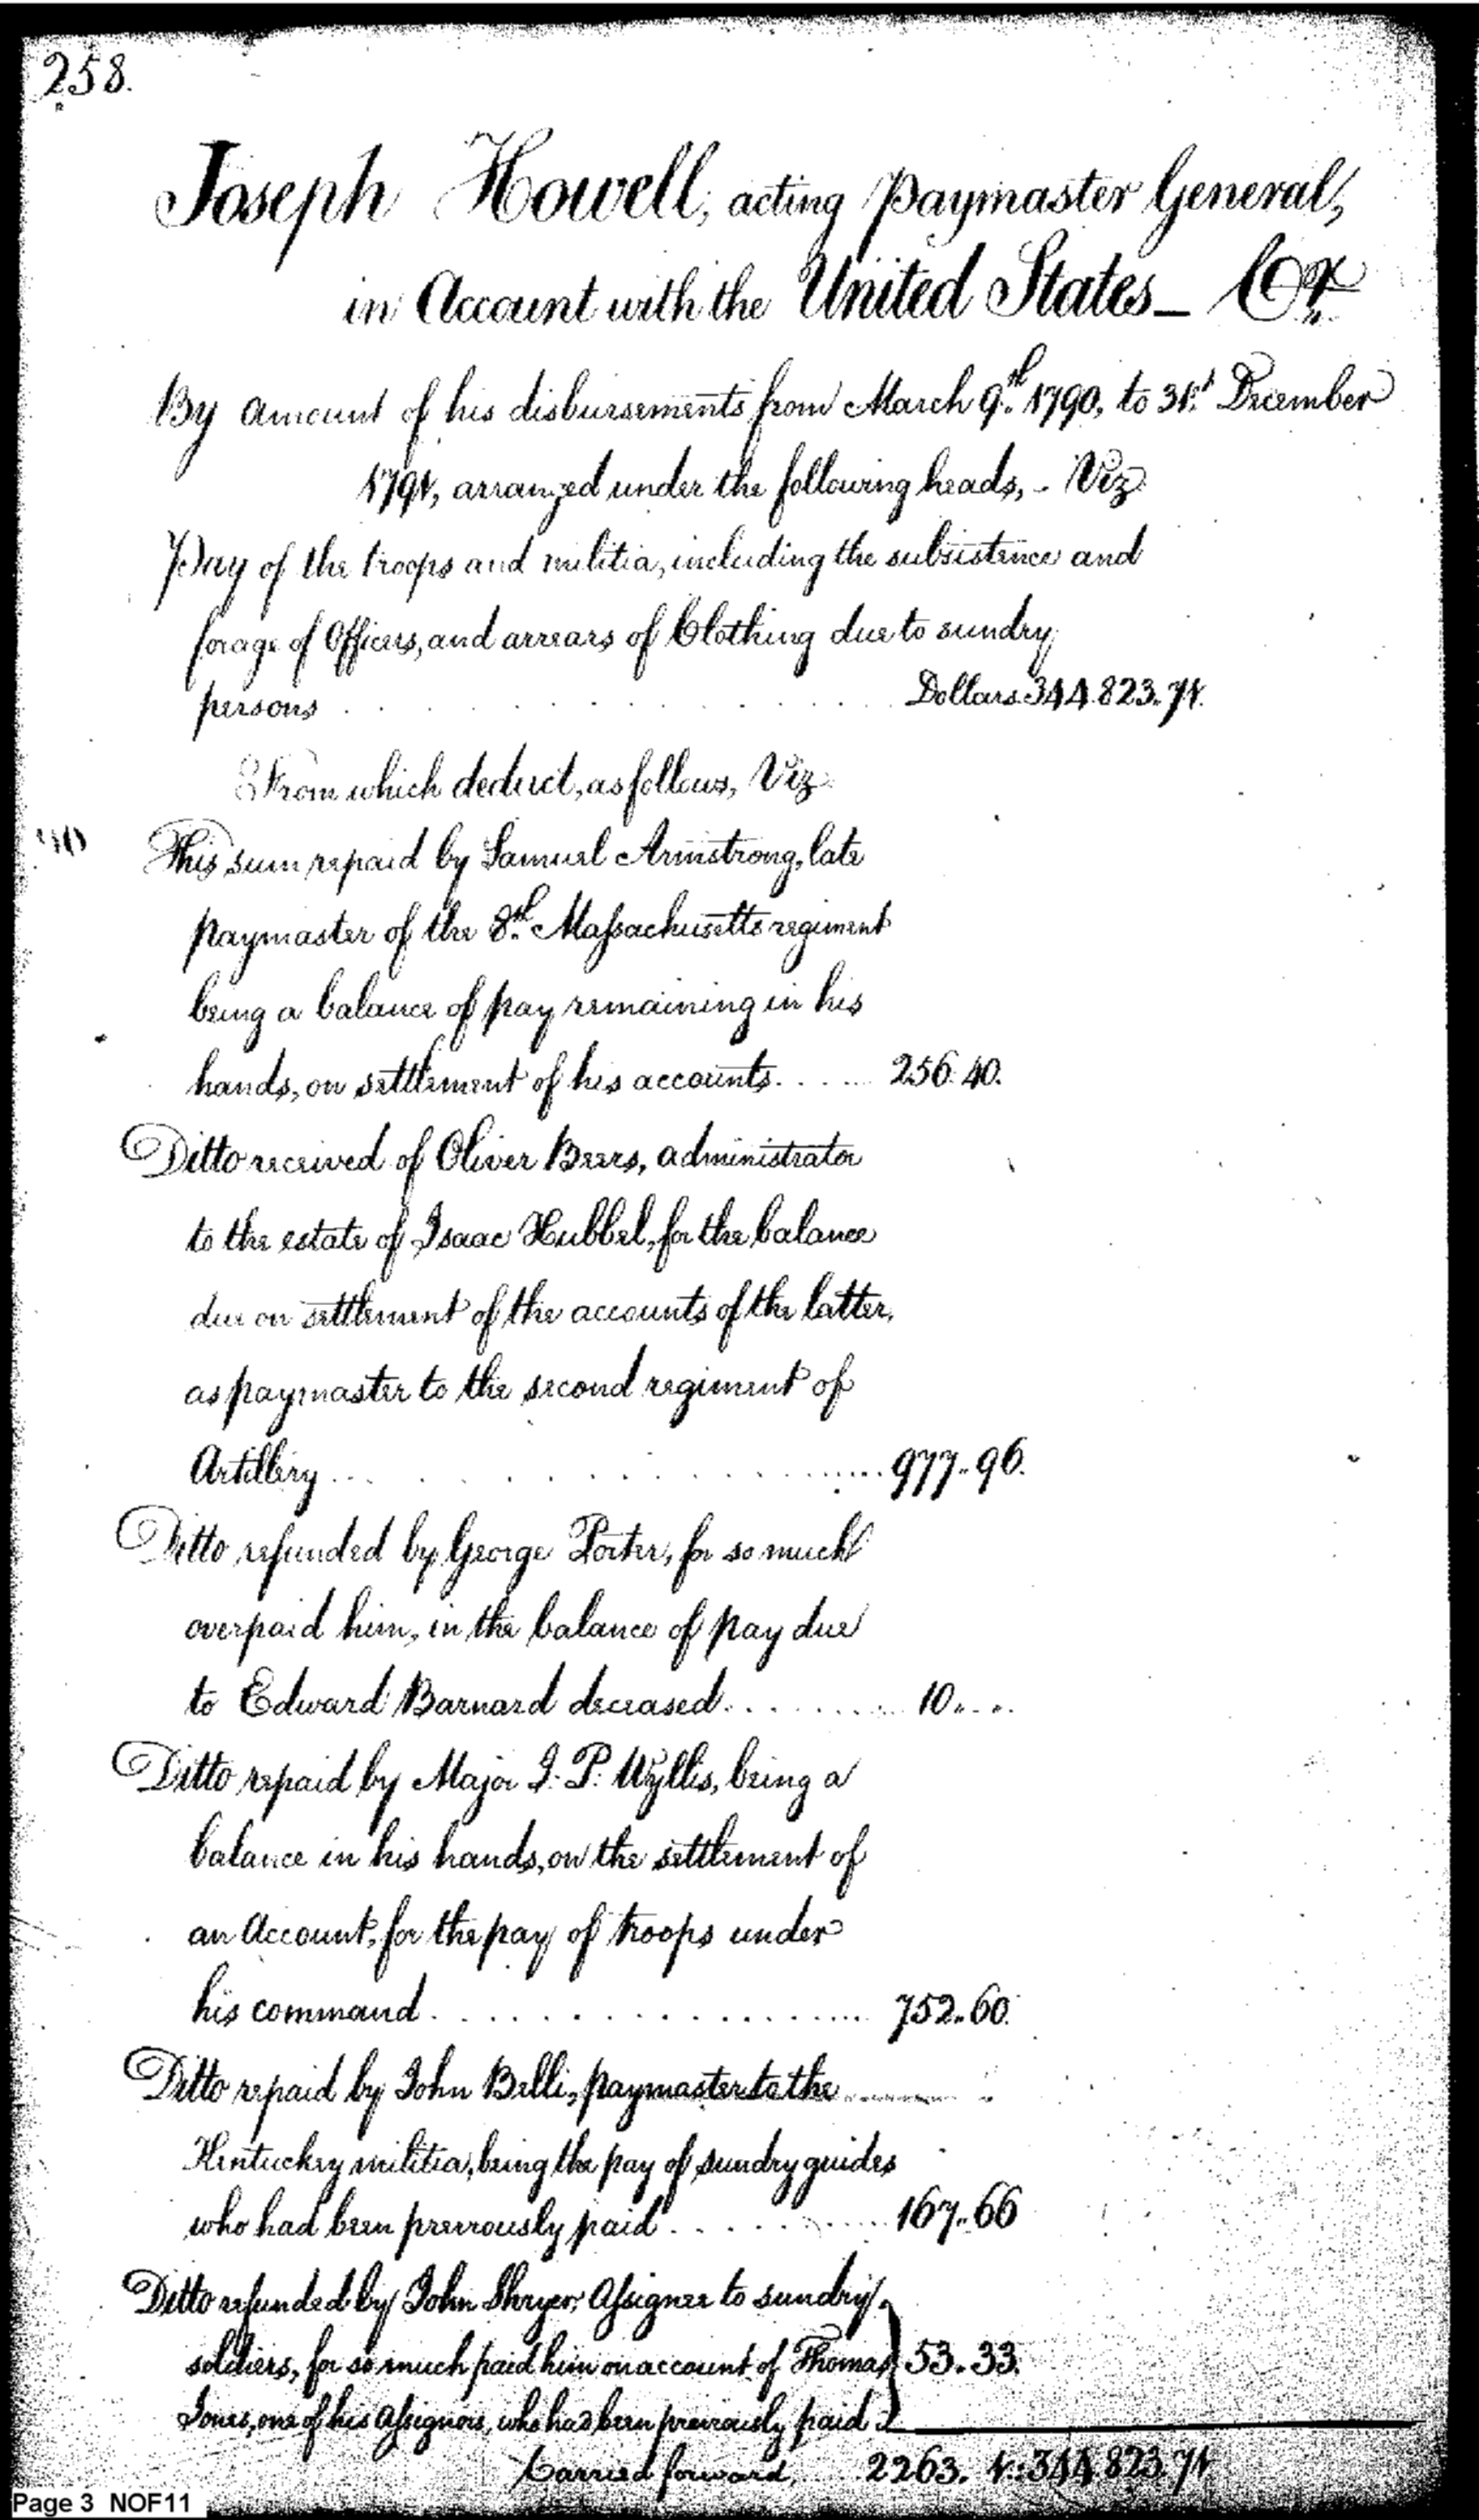 258.
Joseph Howell, acting Paymaster General,
in Account with the United States_ Cr.
By amount of his disbursements from March 9th. 1790, to 31st. December
1791, arranged under the following heads, - Viz
Pay of the troops and militia, including the subsistence and
forage of Officers, and arrears of Clothing due to sundry
persons . . . . . . . . . . . Dollars 344.823.71.
From which deduct, as follows, Viz
This sum repaid by Samuel Armstrong, late
paymaster of the 8th. Massachusetts regiment
being a balance of pay remaining in his
hands, on settlement of his accounts. . . . . . 256.40.
Ditto received of Oliver Beers, administrator
to the estate of Isaac Hubbel, for the balance
due on settlement of the accounts of the latter,
as paymaster to the second regiment of
Artillery . . . . . . . . . . . . . 977..96.
Ditto refunded by George Porter, for so much
overpaid him, in the balance of pay due
to Edward Barnard deceased. . . . . . . . 10.. ..
Ditto repaid by Major J. P. Wyllis, being a
balance in his hands, on the settlement of
an Account, for the pay of troops under
his command . . . . . . . . . . . . . 752..60.
Ditto repaid by John Belli, paymaster to the
Kentuckey militia, being the pay of sundry guides
who had been previously paid . . . . . . . 167..66
Ditto refunded by John Shryer, Assignee to sundry
soldiers, for so much paid him on account of Thomas } 53.33.
Jones, one of his Assignors, who had been previously paid
Carried forward, 2263. 1.: 344.823.71
Page 3 NOF11